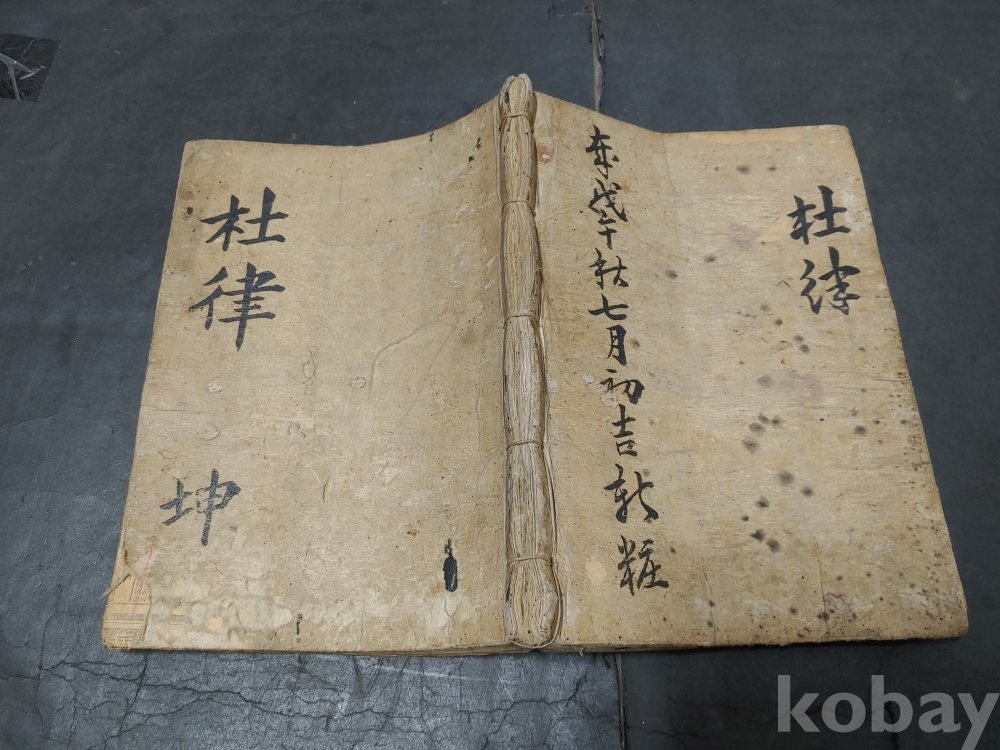 杜律
坤
歲戊午秋七月初吉新粧
杜律
kobay